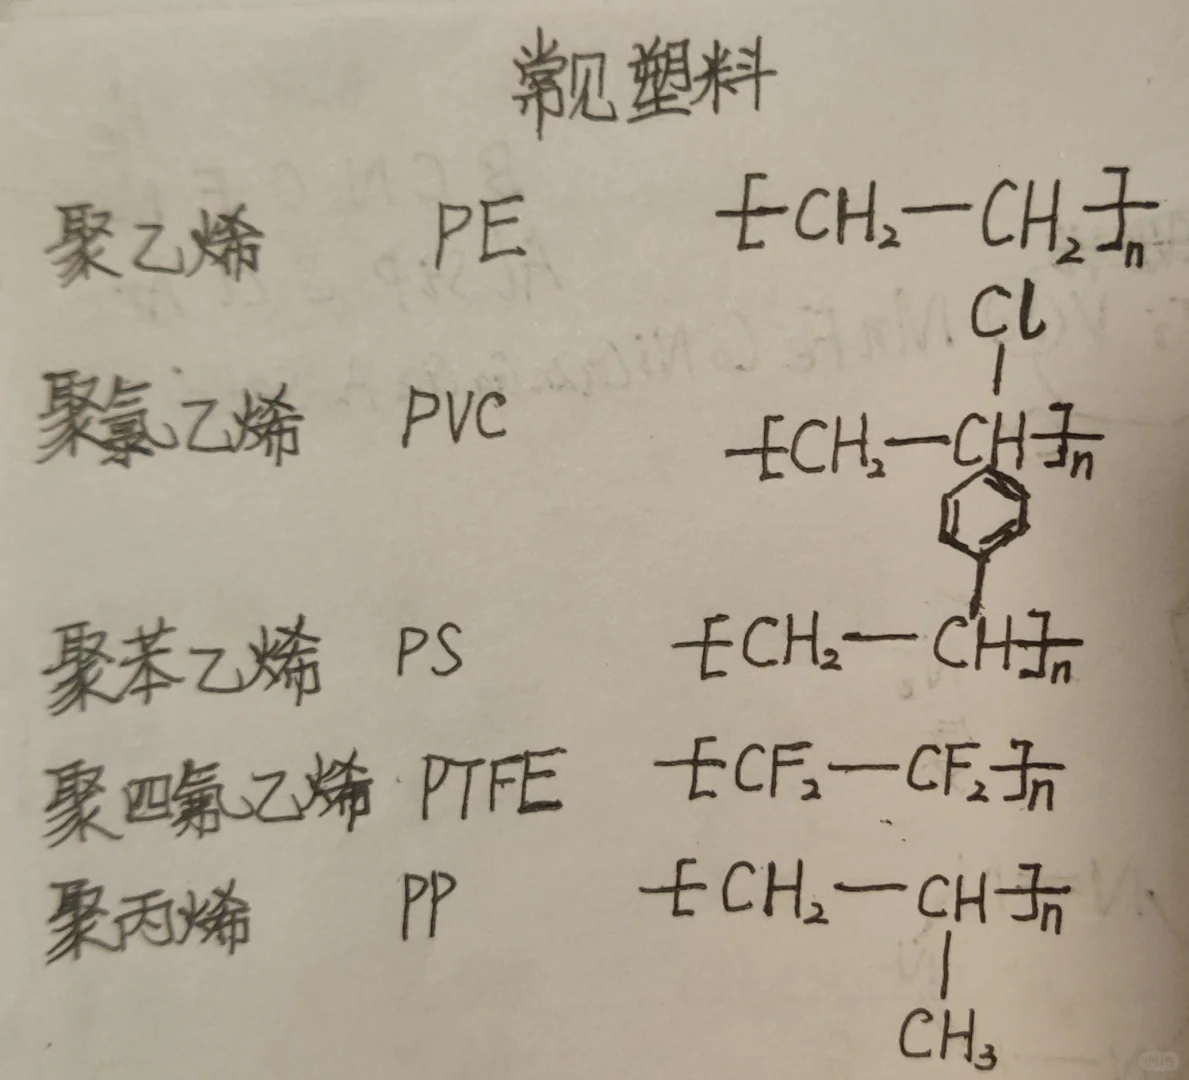 常见塑料
聚乙烯 PE -[CH₂-CH₂]-n
Cl
聚氯乙烯 PVC -[CH₂-CH]-n
聚苯乙烯 PS -[CH₂-CH]-n
聚四氟乙烯 PTFE -[CF₂-CF₂]-n
聚丙烯 PP -[CH₂-CH]-n
CH₃